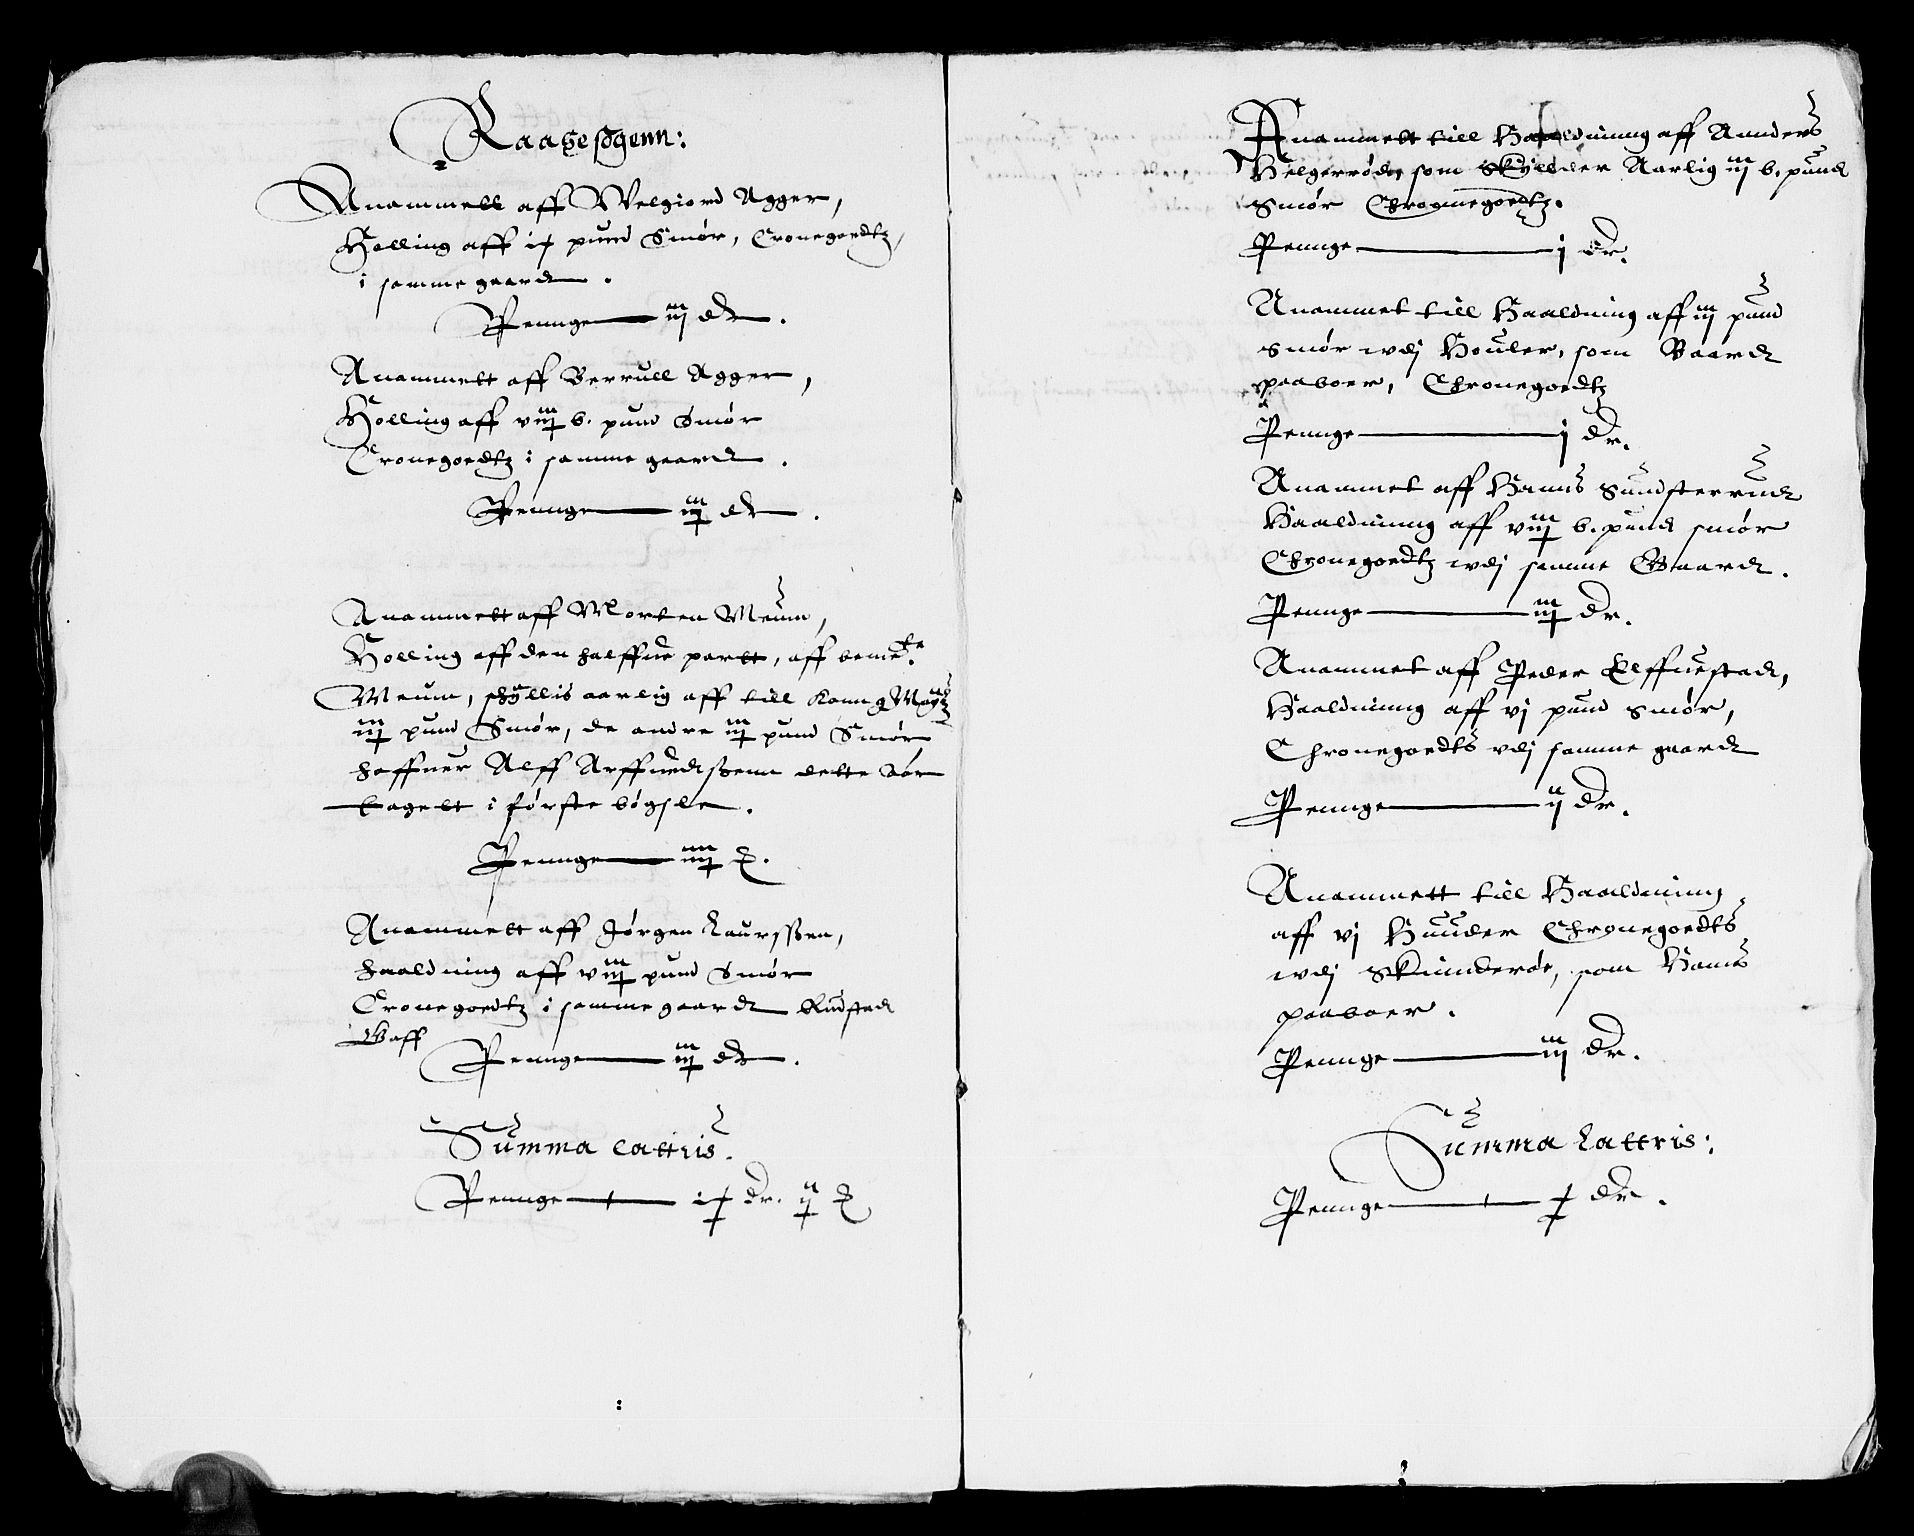 Raagesogenn:
Anammett aff Welgiord Agger,
Holling aff i½ pund Smør, Cronegoedtz,
i samme gaard.
Pennge — iij dr.
Anammett aff Berrull Agger,
Holling aff viij½ b. pund Smør
Cronegoedtz i samme gaard.
Pennge — iij½ dr.
Anammett aff Morten Meum,
Holling aff den halffue partt, aff bemelte
Meum, skyllis aarlig aff till Konng Maytz
iij½ pund Smør, de andre iij½ pund Smør
haffuer Alff Arffuedssenn dette Aar
tagett i første bøgsle.
Pennge — iiij½ ℥.
Anammett aff Jørgen Laurssen,
haaldning aff viij½ pund Smør
Cronegoedtz i samme gaard Rudstad
Pennge — iij½ dr.
Summa Lattris.
Pennge — dr. ij½ ℥
Anammett till Haaldning aff Annders
Helgerrød, som Skylder Aarlig iij b. pund
Smør Chronnegoedtz.
Pennge — j dr.
Anammet till Haaldning aff iij pund
Smør wdj Houler, som Baard
paaboer, Chronegoedtz
Pennge — j dr.
Anammet aff Hanns Sundsterrud
Haaldninng aff viij½ b. pund smør
Chronegoedtz wdj samme Gaard.
Pennge — iij½ dr.
Anammet aff Peder Elffuestad,
Haaldninng aff vj pund smør,
Chronegoedts vdj samme gaard
Pennge — ij dr.
Anammett till Haaldninng
aff vj Huuder Chronegoedts
wdj Skinderøe, som Hanns
paaboer.
Pennge — iij dr.
Summa Lattris:
Pennge — dr.